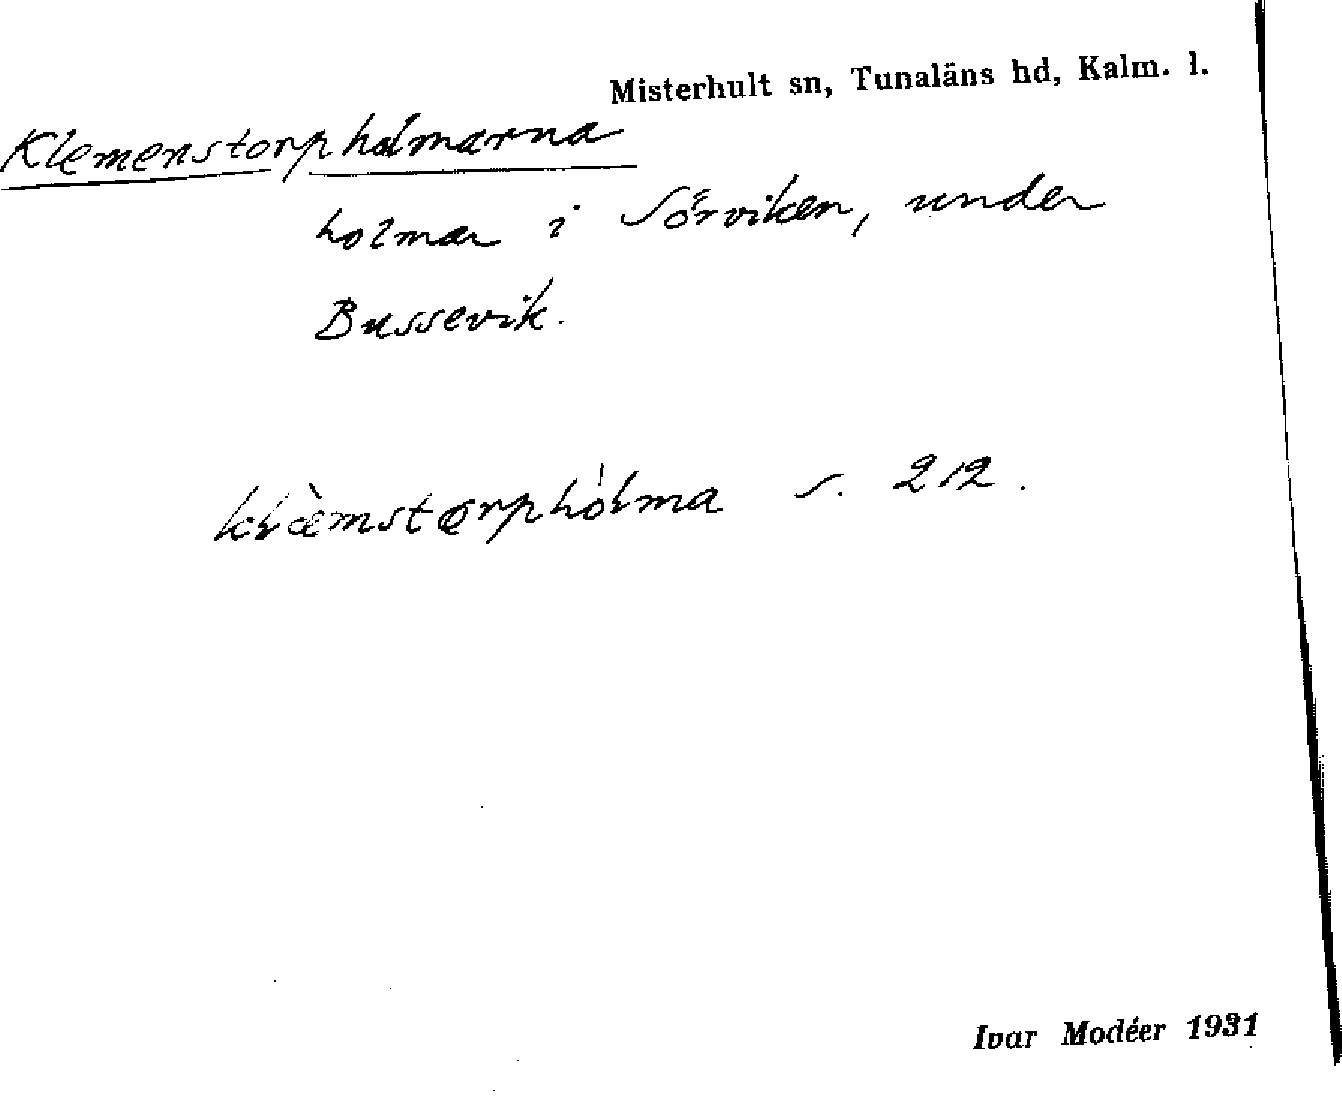 Misterhult sn, Tunaläns hd, Kalm. l.
Klemenstorpholmarna
holmar i Sörviken, under
Bussevik.
klæ̀mstǫrphólma s. 212.
Ivar Modéer 1931